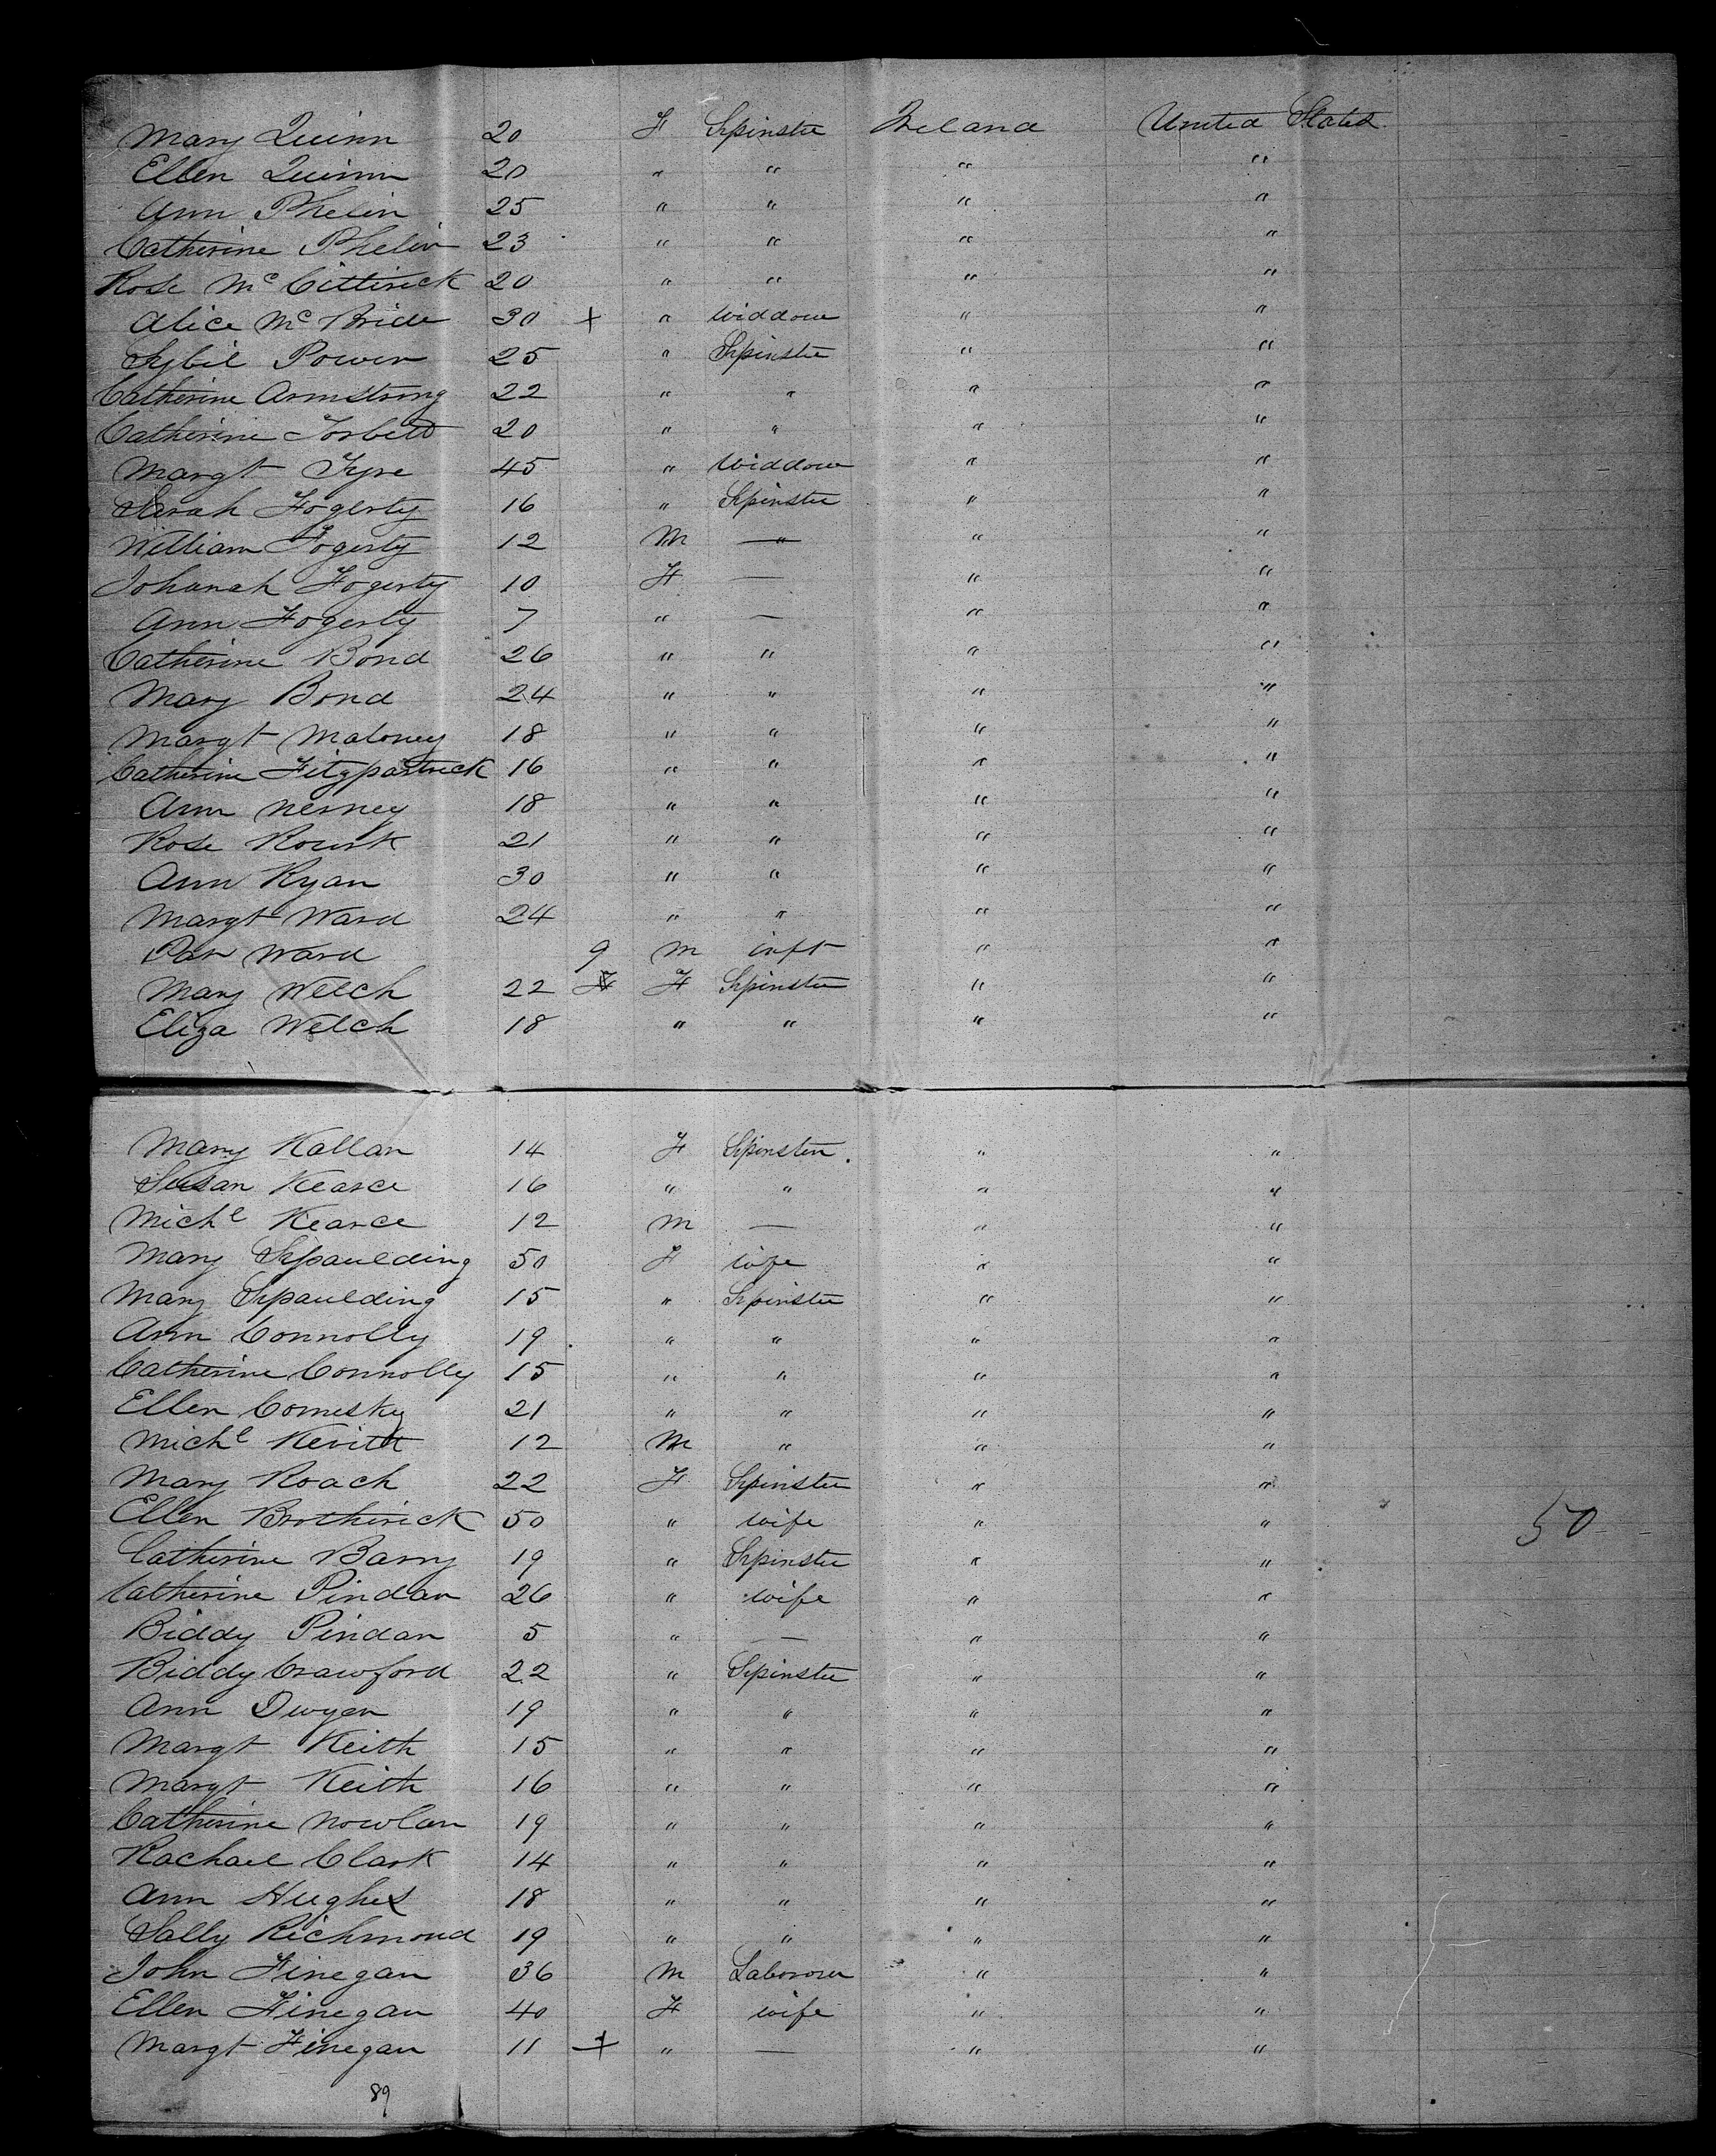 Mary Quinn 20 F Spinster Ireland United States
Ellen Quinn 20 " " " "
Ann Phelin 25 " " " "
Catherine Phelin 23 " " " "
Rose McCitterick 20 " " " "
Alice McBride 30 + " Widdow " "
Sybil Power 25 " Spinster " "
Catherine Armstrong 22 " " " "
Catherine 20 " " " "
Margt Fyre 45 " Widdow " "
Sarah Fogerty 16 " Spinster " "
William Fogerty 12 M — " "
Johanah Fogerty 10 F — " "
Ann Fogerty 7 " — " "
Catherine Bond 26 " " " "
Mary Bond 24 " " " "
Margt Maloney 18 " " " "
Catherine Fitzpartrick 16 " " " "
Ann Nerney 18 " " " "
Rose Rourk 21 " " " "
Ann Ryan 30 " " " "
Margt Ward 24 " " " "
Pat Ward 9 M inft " "
Mary Welch 22 F Spinster " "
Eliza Welch 18 " " " "
Mary Kallan 14 F Spinster " "
Susan Kearce 16 " " " "
Michl Kearce 12 M — " "
Mary Spaulding 50 F wife " "
Mary Spaulding 15 " Spinster " "
Ann Connolly 19 " " " "
Catherine Connolly 15 " " " "
Ellen Comesky 21 " " " "
Michl Kevitt 12 M " " "
Mary Roach 22 F Spinster " "
Ellen Brotherick 50 " wife " " 50
Catherine Barry 19 " Spinster " "
Catherine Pindar 26 " wife " "
Biddy Pindar 5 " — " "
Biddy Crawford 22 " Spinster " "
Ann Dwyer 19 " " " "
Margt Keith 15 " " " "
Margt Keith 16 " " " "
Catherine Nowlan 19 " " " "
Rachael Clark 14 " " " "
Ann Hughes 18 " " " "
Sally Richmond 19 " " " "
John Finegan 36 M Laborour " "
Ellen Finegan 40 F wife " "
Margt Finegan 11 + " — " "
89